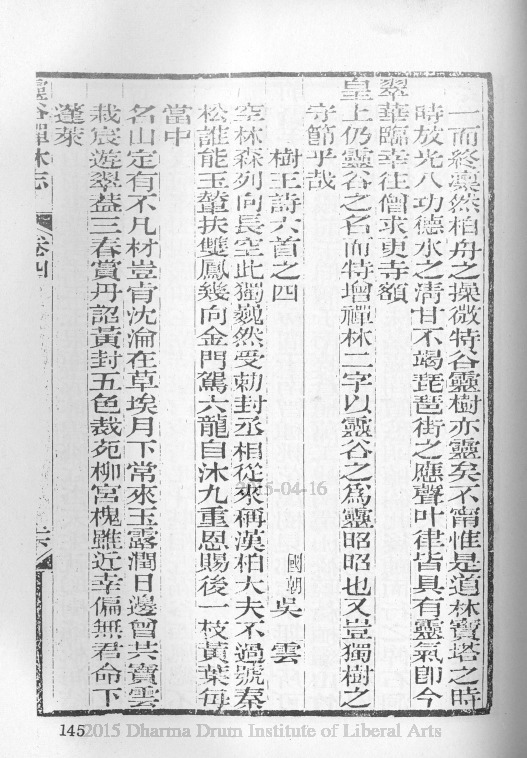 一而終凛然柏舟之操微特谷靈樹亦靈矣不甯惟是道林寶塔之時
時放光八功德水之清甘不竭琵琶街之應聲叶律皆具有靈氣卽今
翠華臨幸往僧求更寺額
皇上仍靈谷之名而特增禪林二字以靈谷之爲靈昭昭也又豈獨樹之
守節乎哉
樹王詩六首之四
國朝 吳雲
空林森列向長空此獨巍然受勅封丞相從來稱漢柏大夫不過號秦
松誰能玉輦扶雙鳳幾向金門駕六龍自沐九重恩賜後一枝黃葉每
當中
名山定有不凡材豈肯沈淪在草埃月下常來玉露潤日邊曾共寶雲
栽宸遊翠葢三春賞丹詔黃封五色裁苑柳宮槐雖近幸偏無君命下
蓬萊
靈谷禪林志
卷四
六
145
2015-04-16
2015 Dharma Drum Institute of Liberal Arts